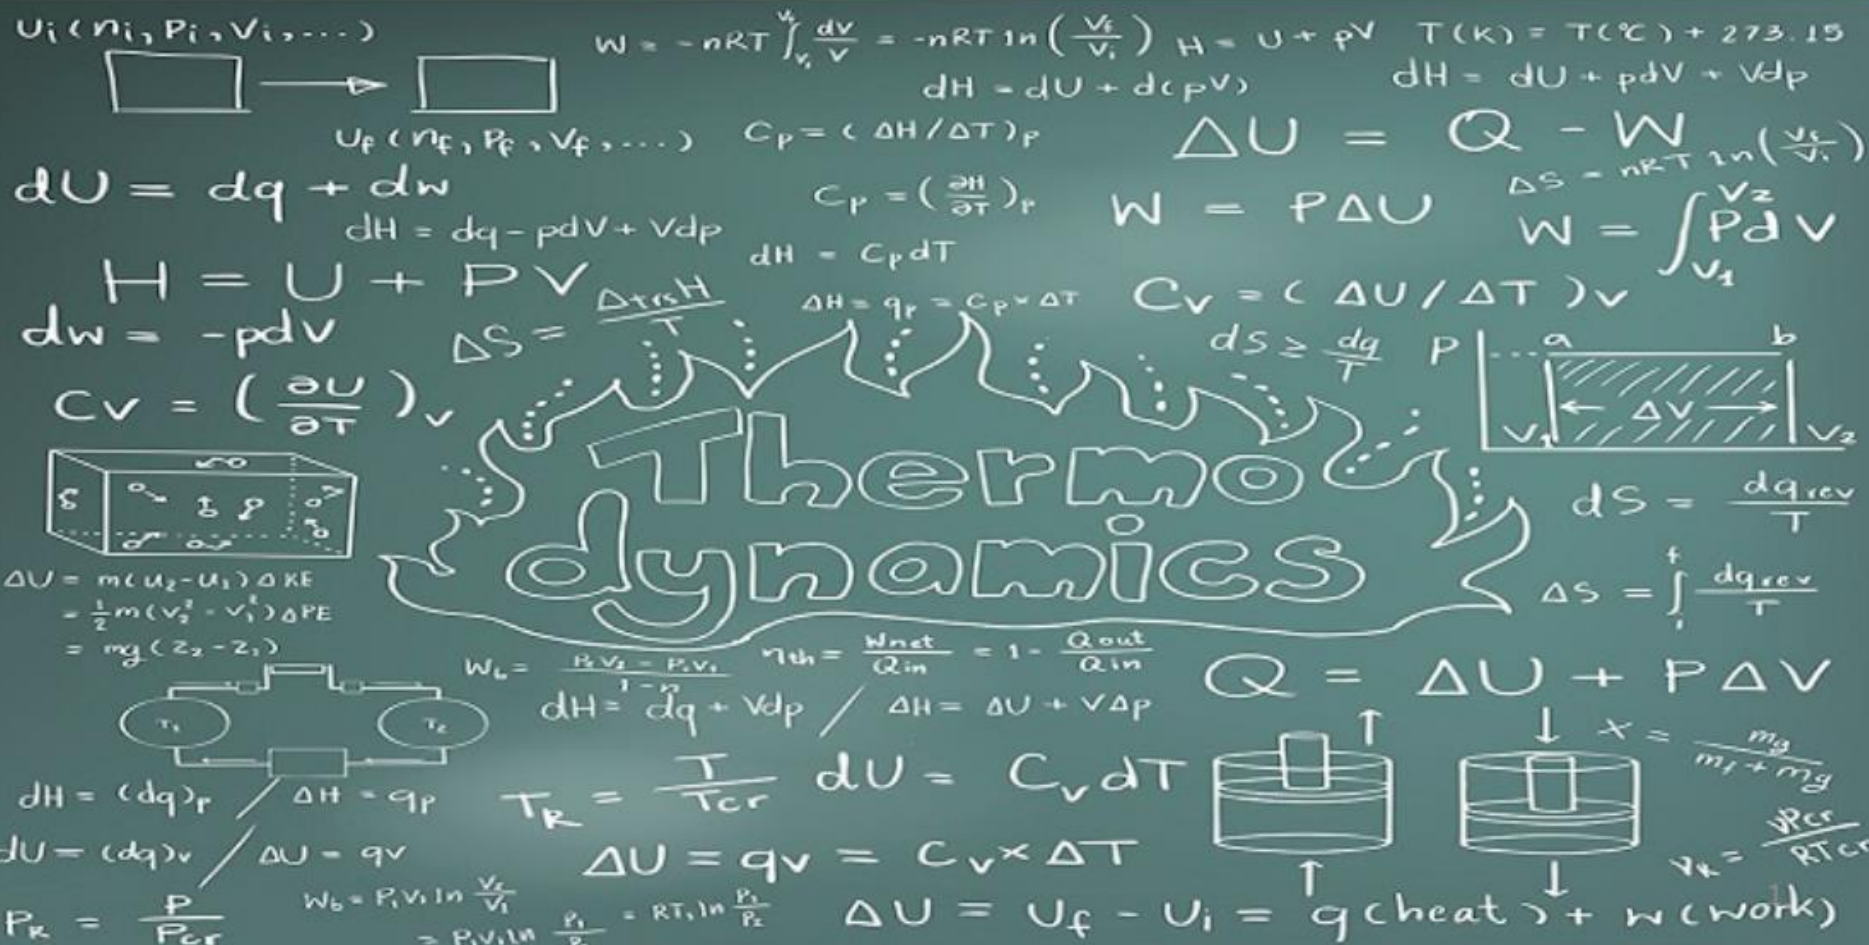 Ui(ni, Pi, Vi, ...)
W = -nRT ∫ᵥᵢᵛᶠ dV/V = -nRT ln(Vf/Vi)
H = U + pV
T(K) = T(°C) + 273.15
dH = dU + d(pV)
dH = dU + pdV + Vdp
Uf(nf, Pf, Vf, ...)
Cp = (ΔH/ΔT)p
ΔU = Q - W
ΔS = nRT ln(Vf/Vi)
dU = dq + dw
Cp = (∂H/∂T)p
W = PΔU
W = ∫V₁V₂ PdV
dH = dq - pdV + Vdp
dH = CpdT
H = U + PV
ΔS = ΔtrsH/T
ΔH = qp = Cp × ΔT
Cv = (ΔU/ΔT)v
dw = -pdV
dS ≥ dq/T
P a b
ΔV
V₁ V₂
Cv = (∂U/∂T)v
Thermo
dynamics
dS = dqrev/T
ΔS = ∫ᵢᶠ dqrev/T
ΔU = m(u₂-u₁) ΔKE
= ½m(V₂²-V₁²) ΔPE
= mg(z₂-z₁)
Wb = P₂V₂ - P₁V₁/1-n
ηth = Wnet/Qin = 1 - Qout/Qin
Q = ΔU + PΔV
dH = dq + Vdp / ΔH = ΔU + VΔp
T₁ T₂
x = mg/mf + mg
dH = (dq)p / ΔH = qp
TR = T/Tcr
dU = CvdT
dU = (dq)v / ΔU = qv
ΔU = qv = Cv × ΔT
vR = vPcr/RTcr
PR = P/Pcr
Wb = P₁V₁ ln V₂/V₁
= P₁V₁ ln P₁/P₂ = RT₁ ln P₁/P₂
ΔU = Uf - Ui = q(heat) + w(work)
1